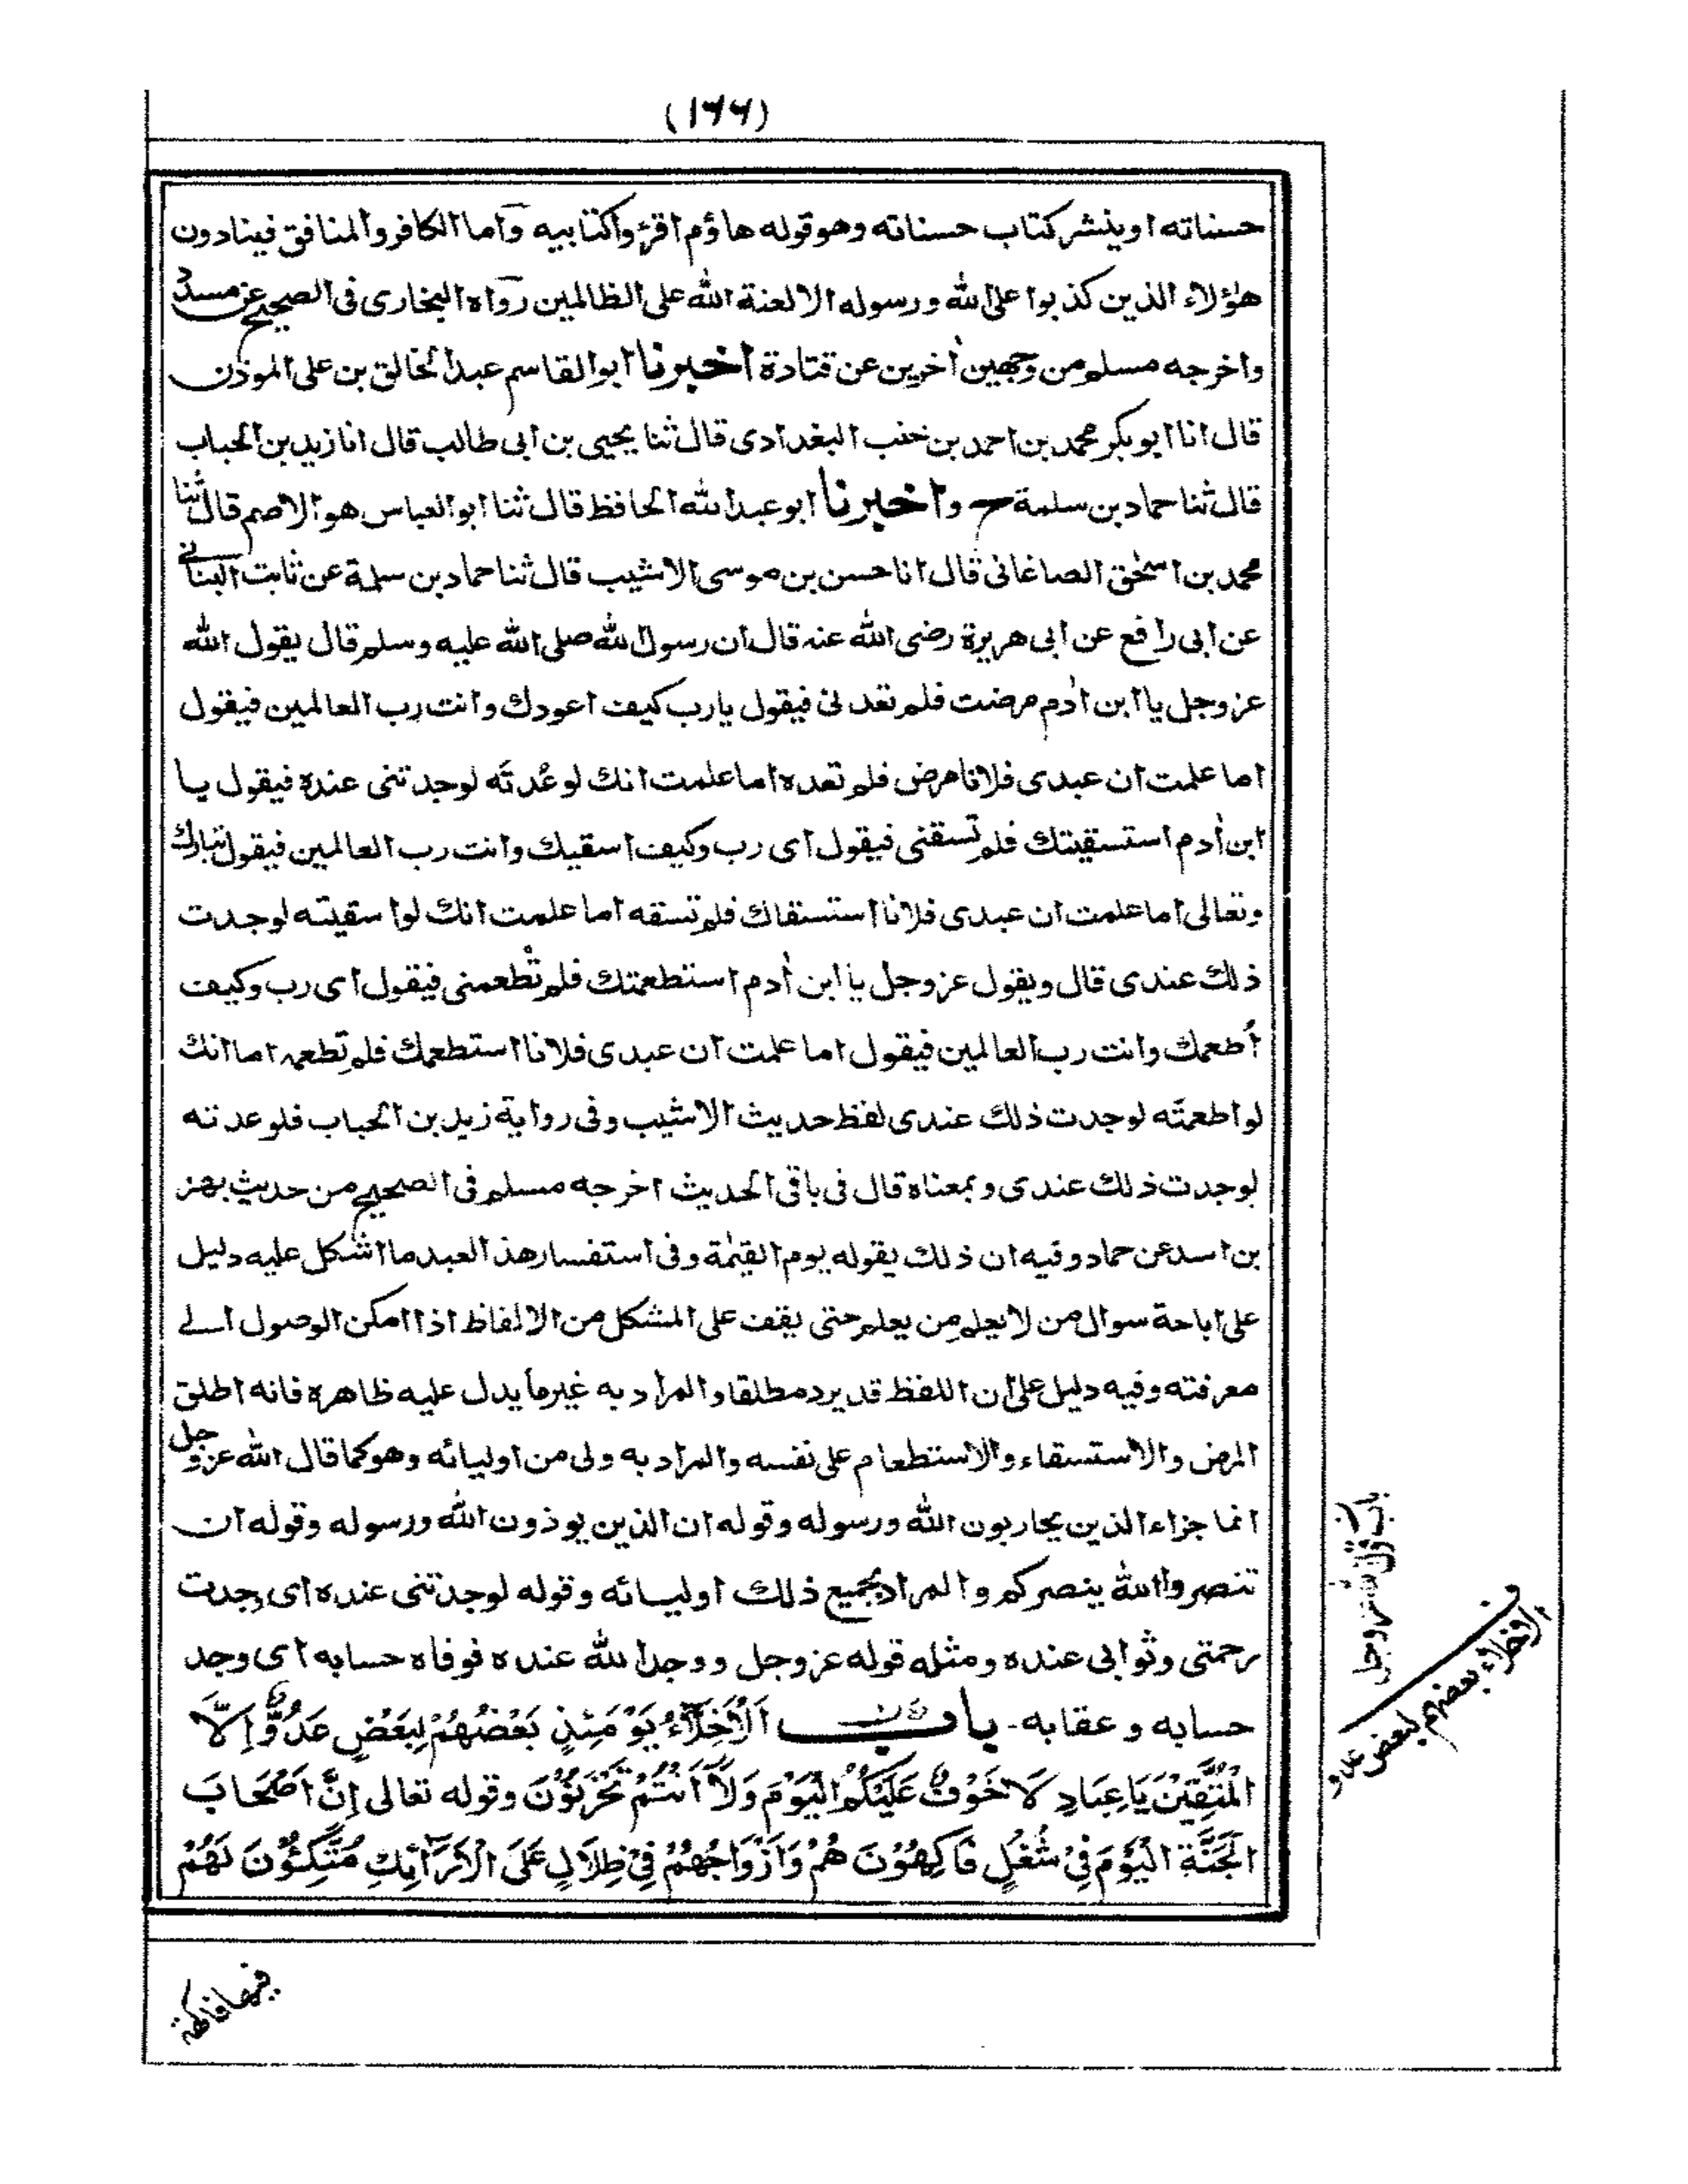 (١٦٦)
حسناته او ينشر كتاب حسناته وهو قوله هاؤم اقرؤا كتابيه واما الكافر والمنافق فينادون
هؤلاء الذين كذبوا على الله ورسوله الا لعنة الله على الظالمين رواه البخارى فى الصحيح عن مسدد
واخرجه مسلم من وجهين أخرين عن قتادة اخبرنا ابو القاسم عبد الخالق بن على الموذن
قال انا ابو بكر محمد بن احمد بن خنب البغدادى قال ثنا يحيى بن ابى طالب قال انا زيد بن الحباب
قال ثنا حماد بن سلمة ح واخبرنا ابو عبد الله الحافظ قال ثنا ابو العباس هو الاصم قال ثنا
محمد بن اسحٰق الصاغانى قال انا حسن بن موسى الاشيب قال ثنا حماد بن سلمة عن ثابت البنانى
عن ابى رافع عن ابى هريرة رضى الله عنه قال ان رسول الله صلى الله عليه وسلم قال يقول الله
عز وجل يا ابن أدم مرضت فلم تعدنى فيقول يارب كيف اعودك وانت رب العالمين فيقول
اما علمت ان عبدى فلانا مرض فلم تعده اما علمت انك لو عُدتَه لوجدتنى عنده فيقول يا
ابن أدم استسقيتك فلم تسقنى فيقول اى رب وكيف اسقيك وانت رب العالمين فيقول تبارك
وتعالى اما علمت ان عبدى فلانا استسقاك فلم تسقه اما علمت انك لو اسقيته لوجدت
ذلك عندى قال ويقول عز وجل يا ابن أدم استطعمتك فلم تُطعمنى فيقول اى رب وكيف
أُطعمك وانت رب العالمين فيقول اما علمت ان عبدى فلانا استطعمك فلم تطعمه اما انك
لو اطعمتَه لوجدت ذلك عندى لفظ حديث الاشيب وفى رواية زيد بن الحباب فلو عدته
لوجدت ذلك عندى وبمعناه قال فى باقى الحديث اخرجه مسلم فى الصحيح من حديث بهز
بن اسد عن حماد وفيه ان ذلك يقوله يوم القيٰمة وفى استفسار هذا العبد ما اشكل عليه دليل
على اباحة سوال من لا يعلم من يعلم حتى يقف على المشكل من الالفاظ اذا امكن الوصول الے
معرفته وفيه دليل على ان اللفظ قد يرد مطلقا والمراد به غير ما يدل عليه ظاهره فانه اطلق
المرض والاستسقاء والاستطعام على نفسه والمراد به ولى من اوليائه وهو كما قال الله عز وجل
انما جزاء الذين يحاربون الله ورسوله وقوله ان الذين يوذون الله ورسوله وقوله ان
تنصروا الله ينصركم والمراد بجميع ذلك اوليائه وقوله لوجدتنى عنده اى وجدت
رحمتى وثوابى عنده ومثله قوله عز وجل ووجد الله عنده فوفاه حسابه اى وجد
حسابه وعقابه - باب اَلْاَخِلَّآءُ يَوْمَئِذٍ بَعْضُهُمْ لِبَعْضٍ عَدُوٌّ اِلَّا
الْمُتَّقِيْنَ يَا عِبَادِ لَا خَوْفٌ عَلَيْكُمُ الْيَوْمَ وَلَآ اَنْتُمْ تَحْزَنُوْنَ وقوله تعالى اِنَّ اَصْحَابَ
الْجَنَّةِ الْيَوْمَ فِىْ شُغُلٍ فَاكِهُوْنَ هُمْ وَاَزْوَاجُهُمْ فِىْ ظِلَالٍ عَلَى الْاَرَآئِكِ مُتَّكِئُوْنَ لَهُمْ
باب قول الله عز وجل
الاخلاء بعضهم لبعض عدو
فيها فاكهة